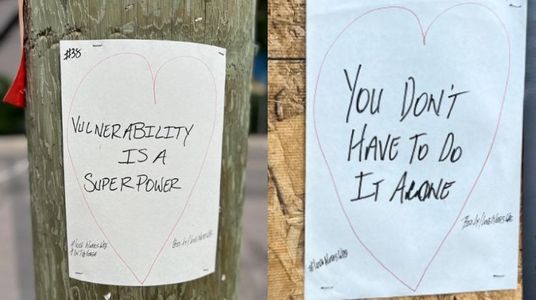 #38
VULNERABILITY
IS A
SUPERPOWER
YOU DON'T
HAVE TO DO
IT ALONE